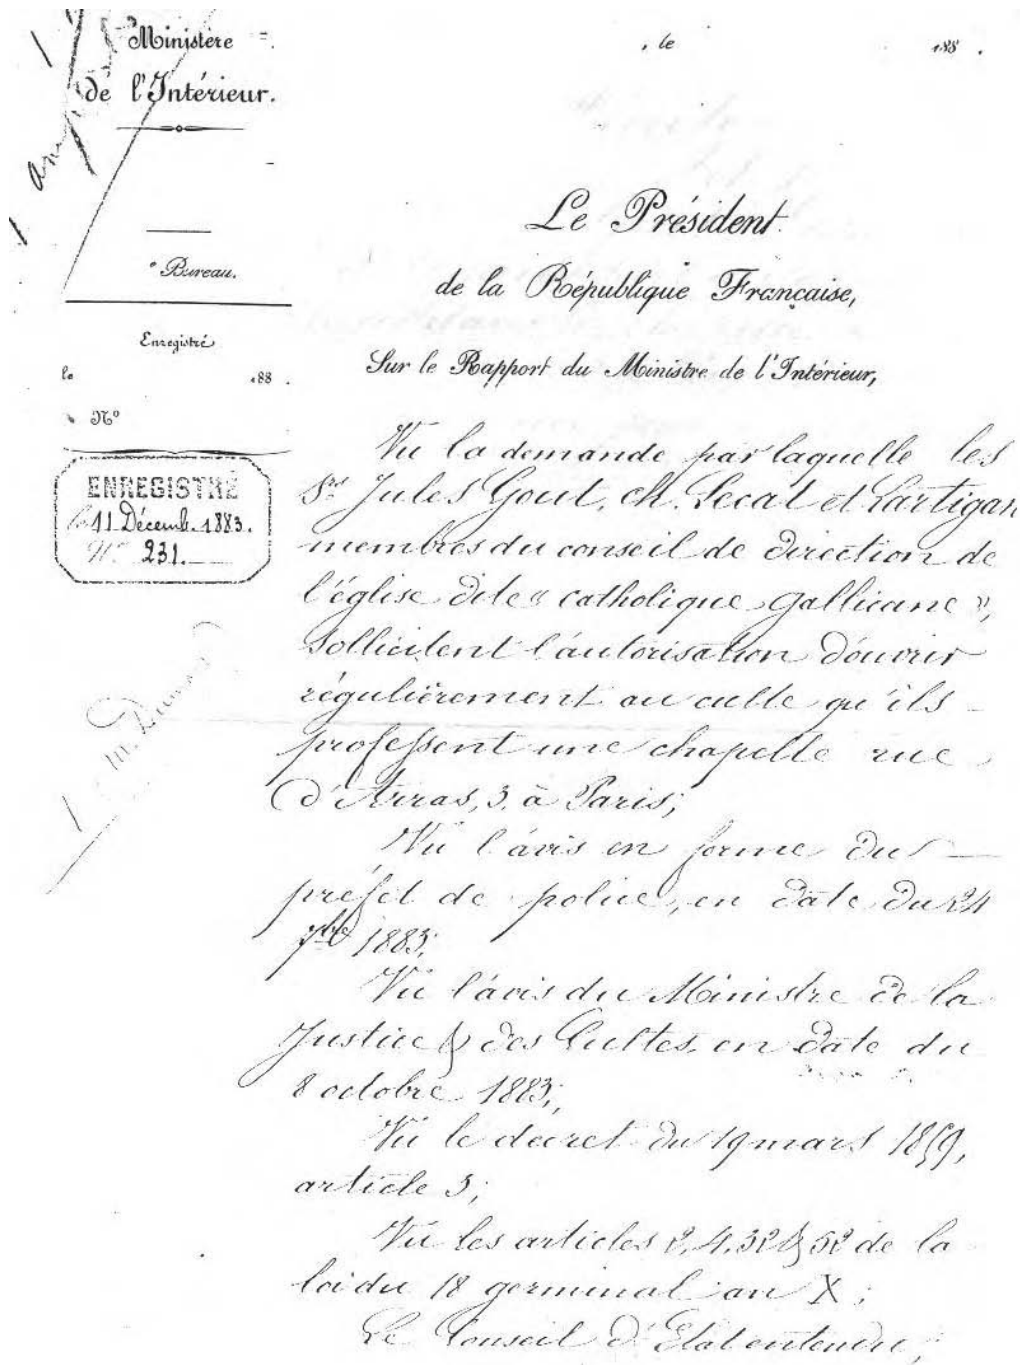 Ministère
de l'Intérieur.
, le 188 .
e Bureau.
Enregistré
le 188 .
No
ENREGISTRÉ
le 11 Décemb. 1883.
No 231.
Le Président
de la République Française,
Sur le Rapport du Ministre de l'Intérieur,
Vu la demande par laquelle les
Srs Jules Gout, ch. Lecat et Lartigau
membres du conseil de direction de
l'église dite « catholique gallicane »,
sollicitent l'autorisation d'ouvrir
régulièrement au culte qu'ils
professent une chapelle rue
d'Arras, 3, à Paris;
Vu l'avis en forme du
préfet de police, en date du 24
7bre 1883;
Vu l'avis du Ministre de la
Justice & des Cultes, en date du
8 octobre 1883;
Vu le décret du 19 mars 1859,
article 3;
Vu les articles 2, 4, 32 & 52 de la
loi du 18 germinal an X;
Le Conseil d'Etat entendu,